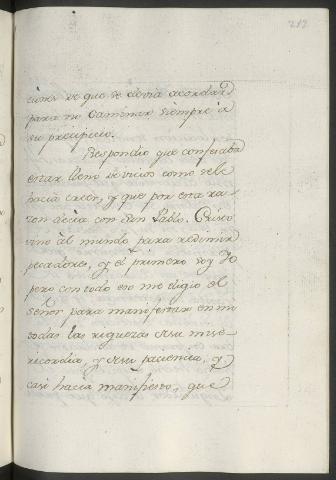 ciones de que se devia acordar
para no caminar siempre à
su precipicio.
Respondió que confesaba
estar lleno de vicios como se le
hacia creer, y que por esta ra-
zon decia con San Pablo. Cristo
vino àl mundo para redimir
pecadores, y el primero soy Yo
pero con todo eso me eligio el
Señor para manifestar en mi
todas las riquezas de su mise-
ricordia, y de su paciencia, y
casi hacia manifiesto, que